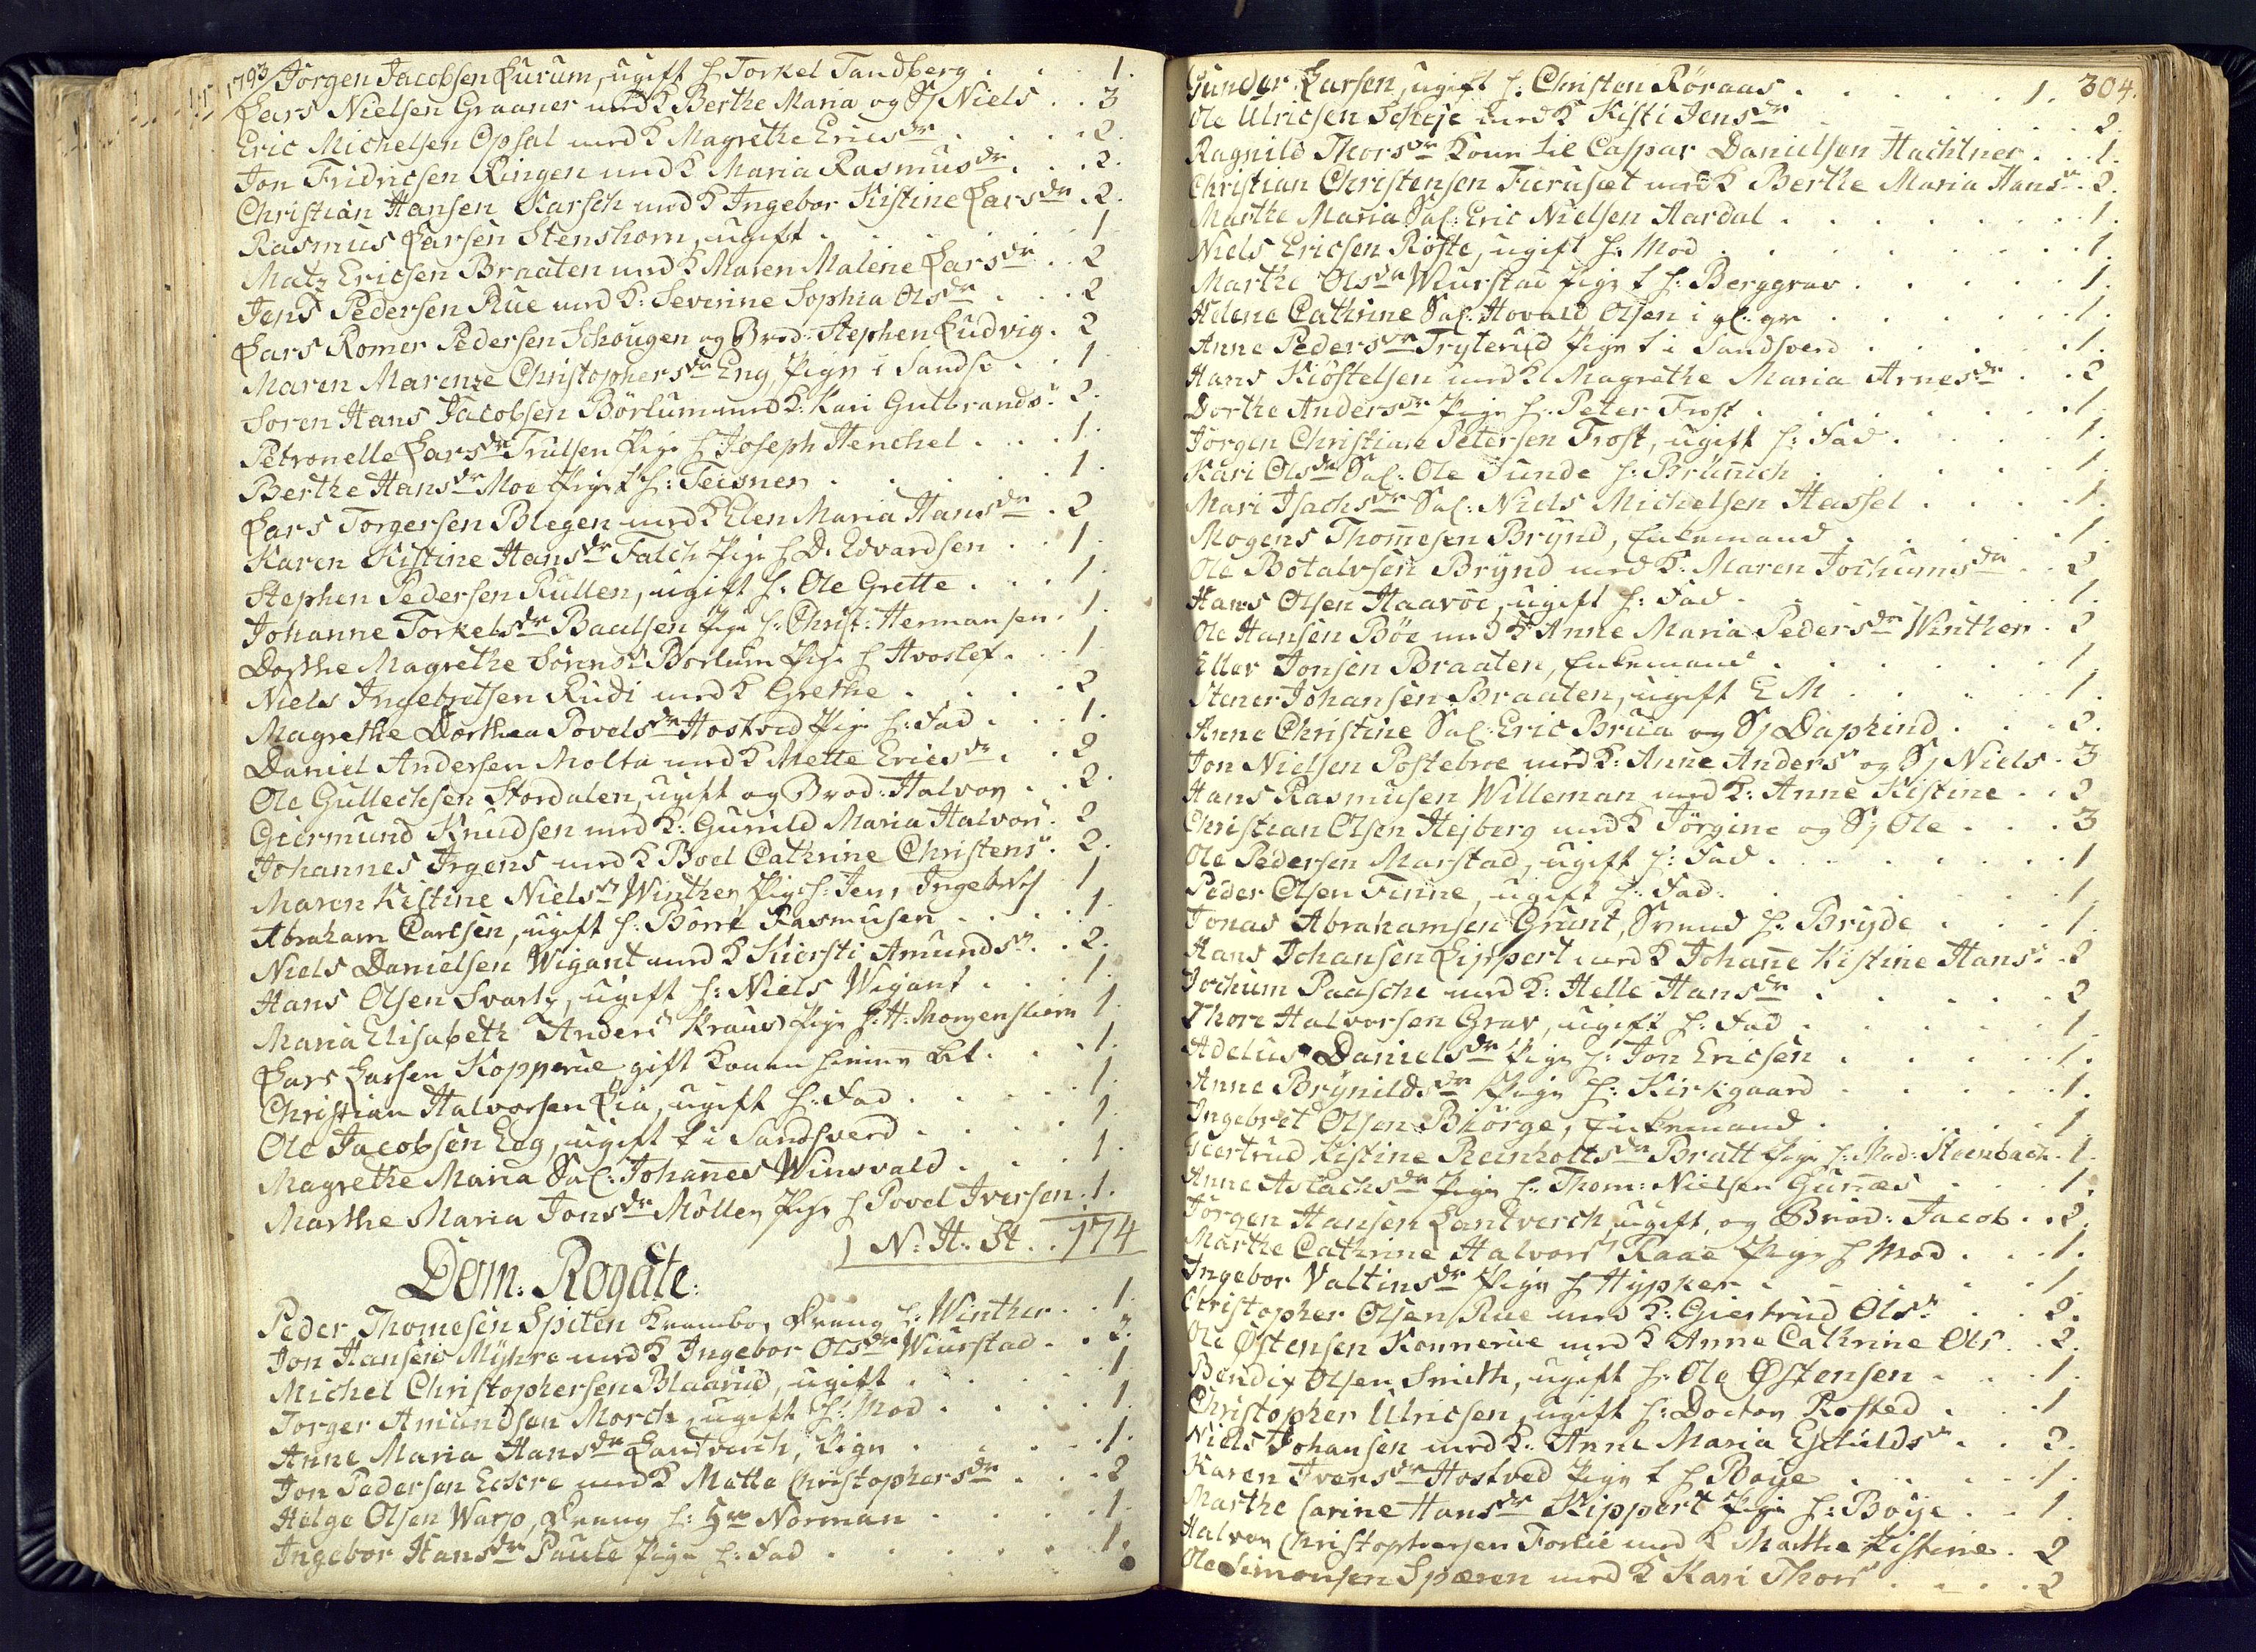 1793/ Jörgen Jacobsen Lurum, ugift h Torkel Tandberg . . 1.
Lars Nielsen Graaner med K Berthe Maria og Sj Niels . . 3
Eric Michelsen Opsal med K Magrethe Ericsdr . . . 2.
Jon Fridricsen Ringen med K Maria Rasmusdr . . . 2.
Christian Hansen Karsch med K Ingebor Kistine Larsdr . 2.
Rasmus Larsen Stenshorn, ugift . . . . 1
Matz Ericsen Braaten med K Maren Malene Larsdr . . 2
Jens Pedersen Rue med K: Severine Sophia Olsdr . . . 2
Lars Romer Pedersen Schougen og Brod: Stephen Ludvig . 2
Maren Marenze Christophersdr Eng, Pige i Sandsv . . 1
Soren Hans Jacobsen Börlum med K: Kari Gulbrandsr . 2.
Petronelle Larsdr Trulsen Pige h Joseph Henchel . . . 1.
Berthe Hansdr Moe Pige t h: Teisner . . . . 1.
Lars Torgersen Blegen med K Elen Maria Hansdr . 2
Karen Kistine Hansdr Falch Pige h D. Edvardsen . . 1.
Stephen Pedersen Rullen, ugift h. Ole Grette . . . 1.
Johanne Torkelsdr Baalsen Pige h: Christ: Hermansen . 1.
Dorthe Magrethe Sörensdr Borlum Pige h Hvoslef . . 1
Niels Ingebretsen Rudi med K Grethe . . . . 2
Magrethe Dorthea Povelsdr Hostved Pige h: Fad . . . 1.
Daniel Andersen Molta med K Mette Ericsdr . . 2
Ole Gullechsen Stordalen, ugift og Brod: Halvor . . 2.
Giermund Knudsen med K: Gunild Maria Halvorsr . 2
Johannes Irgens med K Boel Cathrine Christensr . 2.
Maren Kistine Nielsdr Winther, Pige h: Jens Ingebrets 1
Abraham Carlsen, ugift h: Börre Rasmusen . . . . 1.
Niels Danielsen Wigant med K Kiersti Amundsr . . 2.
Hans Olsen Svartz, ugift h: Niels Wigant . . . 1.
Maria Elisabeth Andersr Kraus Pige h: H: Morgenstiern 1.
Lars Larsen Kopperue gift Konen . . . 1.
Christian Halvorsen Lia, ugift h: Fad . . . . 1.
Ole Jacobsen Eeg, ugift t i Sandsverd . . . . 1.
Magrethe Maria Sal: Johannes Winsvald . . . 1.
Marthe Maria Jonsdr Möller Pige h Povel Iversen . 1.
N: H: St . . 174
Dom: Rogate:
Peder Thomesen Spiten Krambo, Dreng h: Winther . . 1
Jon Hansen Myhre med K Ingebor Olsdr Wiurstad . . 2.
Michel Christophersen Blaarud, ugift . . . . 1.
Torger Amundsen Morch, ugift h: Mod . . . . 1.
Anne Maria Hansdr Lantverch, Pige . . . . 1.
Jon Pedersen Eckre med K Mette Christophersdr . . . 2
Helge Olsen Warp, Dreng h: Hr Norman . . . . 1.
Ingebor Hansdr Paule Pige h: Fad . . . . . 1.
304.
Gunder Larsen, ugift h: Christen Röraas . . . . . 1.
Ole Ulricsen Scheje med K Kisti Jensdr . . . . 2.
Ragnild Thorsdr Konen til Caspar Danielsen Hachtner . . 1.
Christian Christensen Fieruset med K Berthe Maria Hansr . 2.
Marthe Maria Sal: Eric Nielsen Aardal . . . . . 1.
Niels Ericsen Röste, ugift h: Mod . . . . . 1.
Marthe Olsdr Wiurstad Pige t h: Berggrav . . . . . 1.
Helene Cathrine Sal: Hovald Olsen i gl: gr . . . . 1.
Anne Pedersdr Tryterud Pige t i Sandsverd . . . . . 1.
Hans Kiöstelsen med K Magrethe Maria Arnesdr . . 2
Dorthe Andersdr Pige h: Peter Frost . . . . . . 1.
Jörgen Christian Petersen Frost, ugift h: Fad . . . . 1.
Kari Olsdr Sal: Ole Sunde h: Brünnich . . . . 1.
Mari Isachsdr Sal: Niels Michelsen Hassel . . . . 1.
Mogens Thommesen Brynd, Enkemand . . . . . 1.
Ole Botalvsen Brynd med K: Maren Jochumsdr . . 2
Hans Olsen Haavoe, ugift h: Fad . . . . . 1.
Ole Hansen Böe med K Anne Maria Pedersdr Winther . 2
Ellev Jonsen Braaten, Enkemand . . . . . 1.
Stener Johansen Braaten, ugift E M . . . . . 1.
Anne Christine Sal: Eric Brua og Sj Daphind . . . 2.
Jon Nielsen Postebroe med K: Anne Andersr og Sj Niels . 3
Hans Rasmusen Willeman med K: Anne Kistine . . 2
Christian Olsen Hejberg med K Jörgine og Sj Ole . . . 3
Ole Pedersen Marstad, ugift h: Fad . . . . . 1
Peder Olsen Finne, ugift h: Fad . . . . . 1.
Jonas Abrahamsen Grant, Svend h: Bryde . . . 1.
Hans Johansen Lippert med K Johanne Kistine Hansr . 2
Jochum Paasche med K: Helle Hansdr . . . . . 2
Thore Halvorsen Grav, ugift h: Fad . . . . . 1.
Adelus Danielsdr Pige h: Jon Ericsen . . . . . 1.
Anne Brynildsdr Pige h: Kirkgaard . . . . . 1.
Ingebret Olsen Biörge, Enkemand . . . . . 1.
Giertrud Kistine Reinholttsdr Bratt Pige h: Mad: Steenbach . 1.
Anne Aslachsdr Pige h: Thom: Nielsen Gunnæs . . . 1.
Jörgen Hansen Lantverch, ugift, og Brod: Jacob . . 2.
Marthe Cathrine Halvorsr Raae Pige h Mod . . . 1.
Ingebor Valtinsdr Pige h Hypker . . . . . 1.
Christopher Olsen Rue med K: Giertrud Olsr . . . 2.
Ole Östensen Konnerue med K Anne Cathrine Ols . . 2.
Bendix Olsen Smith, ugift h: Ole Östensen . . . 1.
Christopher Ulricsen, ugift h: Doctor Rosted . . . 1
Niels Johansen med K: Anne Maria Eschildsr . . 2.
Karen Iversdr Hostved Pige t h Boye . . . . . 1.
Marthe Carine Hansdr Kippert Pige h: Boye . . 1.
Halvor Christophersen Forlie med K Marthe Kistine . 2
Ole Simensen Spæren med K Kari Thorsr . . . . 2